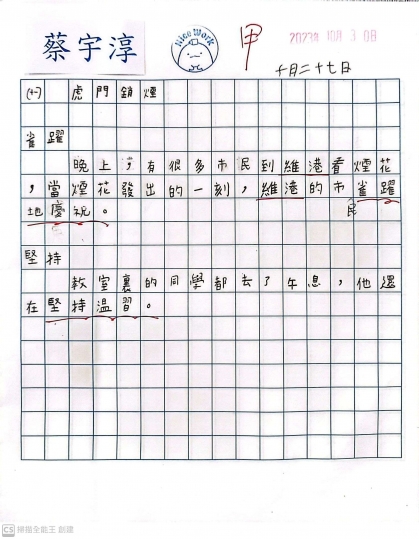 蔡宇淳
Nice Work
甲
十月二十七日
(十一) 虎門銷煙
雀躍
晚上，有很多市民到維港看煙花
，當煙花發出的一刻，維港的市民雀躍
地慶祝。
堅持
教室裏的同學都去了午息，他還
在堅持溫習。
CS 掃描全能王 創建